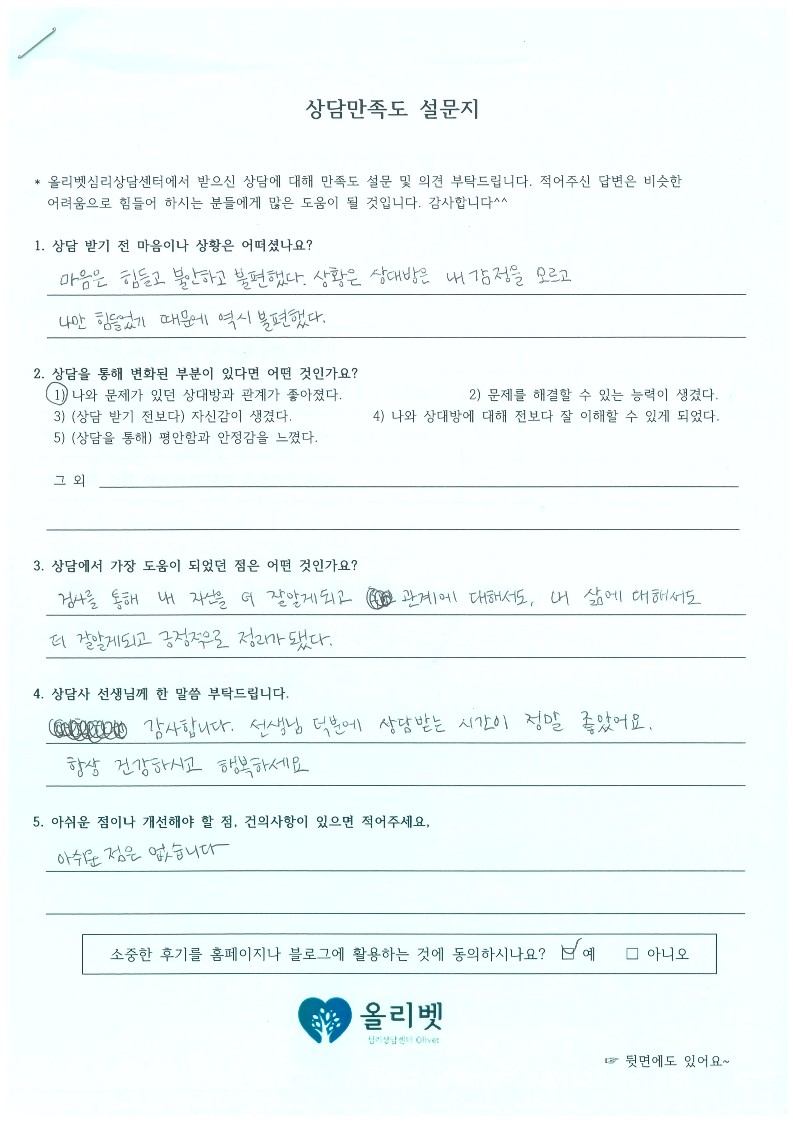 상담만족도 설문지
* 올리벳심리상담센터에서 받으신 상담에 대해 만족도 설문 및 의견 부탁드립니다. 적어주신 답변은 비슷한
어려움으로 힘들어 하시는 분들에게 많은 도움이 될 것입니다. 감사합니다^^
1. 상담 받기 전 마음이나 상황은 어떠셨나요?
마음은 힘들고 불안하고 불편했다. 상황은 상대방은 내 감정을 모르고
나만 힘들었기 때문에 역시 불편했다.
2. 상담을 통해 변화된 부분이 있다면 어떤 것인가요?
1) 나와 문제가 있던 상대방과 관계가 좋아졌다. 2) 문제를 해결할 수 있는 능력이 생겼다.
3) (상담 받기 전보다) 자신감이 생겼다. 4) 나와 상대방에 대해 전보다 잘 이해할 수 있게 되었다.
5) (상담을 통해) 평안함과 안정감을 느꼈다.
그 외
3. 상담에서 가장 도움이 되었던 점은 어떤 것인가요?
검사를 통해 내 자신을 더 잘알게되고 관계에 대해서도, 내 삶에 대해서도
더 잘알게되고 긍정적으로 정리가 됐다.
4. 상담사 선생님께 한 말씀 부탁드립니다.
감사합니다. 선생님 덕분에 상담받는 시간이 정말 좋았어요.
항상 건강하시고 행복하세요
5. 아쉬운 점이나 개선해야 할 점, 건의사항이 있으면 적어주세요,
아쉬운 점은 없습니다
소중한 후기를 홈페이지나 블로그에 활용하는 것에 동의하시나요? ☑ 예 □ 아니오
올리벳
심리상담센터 Olivet
☞ 뒷면에도 있어요~